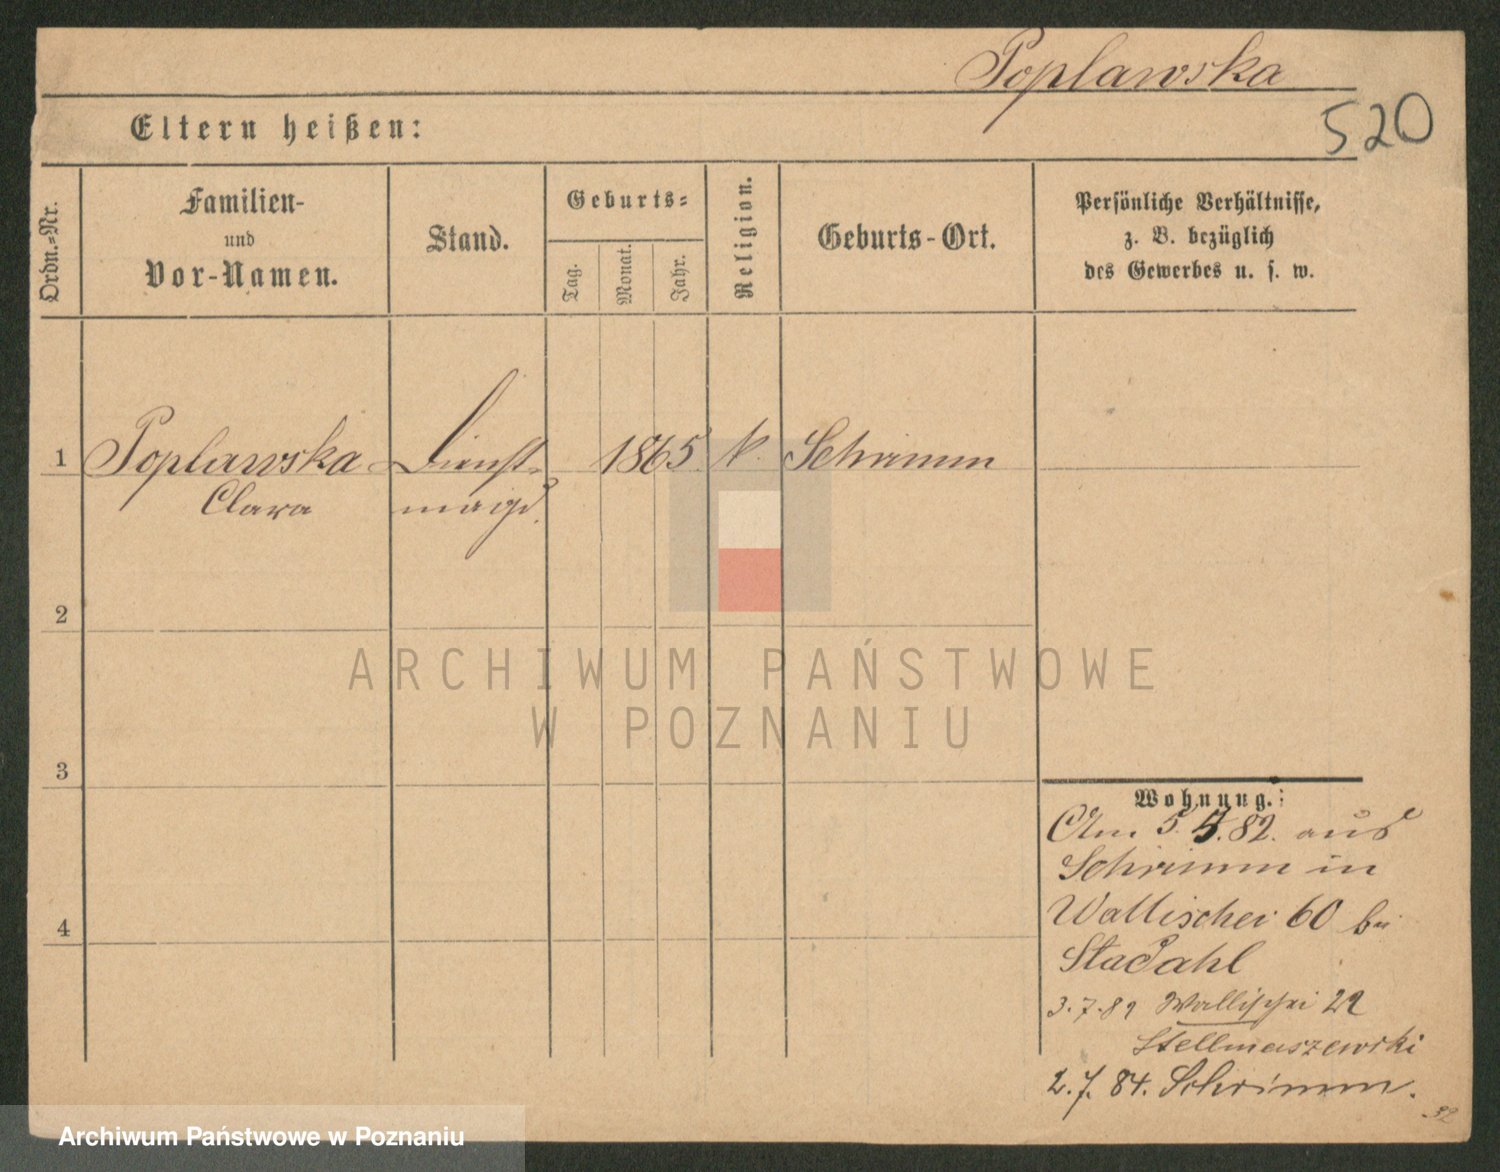 Poplawska
520
Eltern heißen:
Ordn.-Nr.
Familien-
und
Vor-Namen.
Stand.
Geburts-
Tag.
Monat.
Jahr.
Religion.
Geburts-Ort.
Persönliche Verhältnisse,
z. B. bezüglich
des Gewerbes u. s. w.
1 Poplawska Dienst- 1865. k. Schrimm
Clara magd.
2
3
4
ARCHIWUM PAŃSTWOWE
W POZNANIU
Wohnung.:
Am 5. 5. 82. aus
Schrimm in
Wallischei 60 bei
Stadahl
3.7.82 Wallischei 22
Stellmaszewski
2.7. 84. Schrimm.
Archiwum Państwowe w Poznaniu